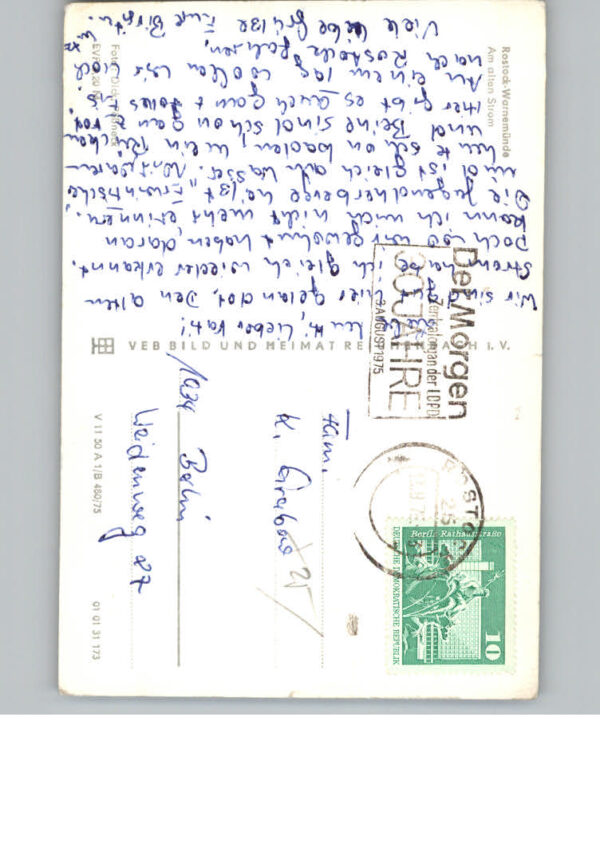 Rostock-Warnemünde
Am alten Strom
Lieber Vati!
Wir sind gut hier gelandet. Den alten
Strom habe ich gleich wieder erkannt.
Doch wo wir gewohnt haben, daran
kann ich mich nicht mehr erinnern.
Die Jugendherberge heißt
und ist gleich am Wasser. Wir waren
heute schon baden, mein Rücken
und Beine sind schon ganz rot
Hier gibt es auch ganz tolles Eis.
An einem Tag wollen wir noch
nach Rostock fahren.
Viele liebe Grüße Eure Birgit.
VEB BILD UND HEIMAT REICHENBACH I.V.
V 11 50 A 1/B 460/75
01 01 31 173
Der Morgen
Zentralorgan der LDPD
30 JAHRE
3. AUGUST 1975
ROSTOCK
Berlin, Rathausstraße
DEUTSCHE DEMOKRATISCHE REPUBLIK
10
Fam.
K.
1034 Berlin
Weidenweg